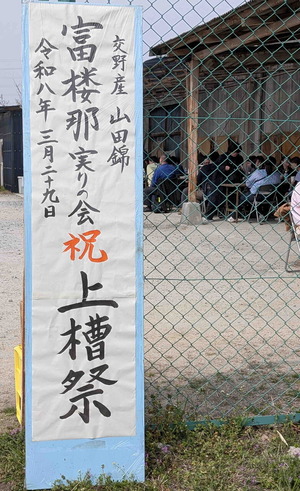 交野産 山田錦
富楼那実りの会
祝 上槽祭
令和八年三月二十九日